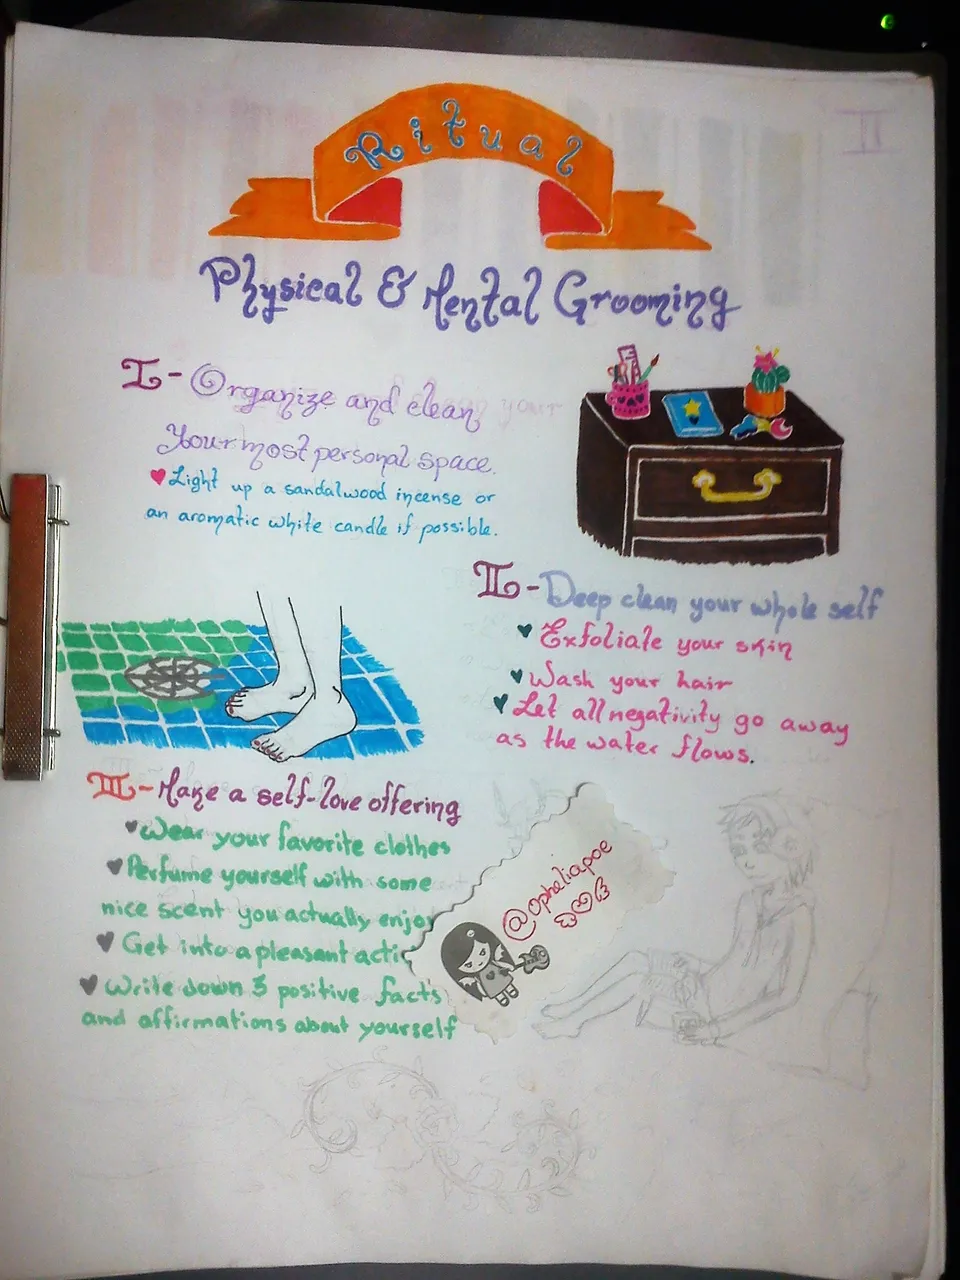 II
Ritual
Physical & Mental Grooming
I - Organize and clean
your most personal space.
Light up a sandalwood incense or
an aromatic white candle if possible.
II - Deep clean your whole self
Exfoliate your skin
Wash your hair
Let all negativity go away
as the water flows.
III - Make a self-love offering
Wear your favorite clothes
Perfume yourself with some
nice scent you actually enjo
Get into a pleasant acti
Write down 3 positive facts
and affirmations about yourself
@opheliapoe